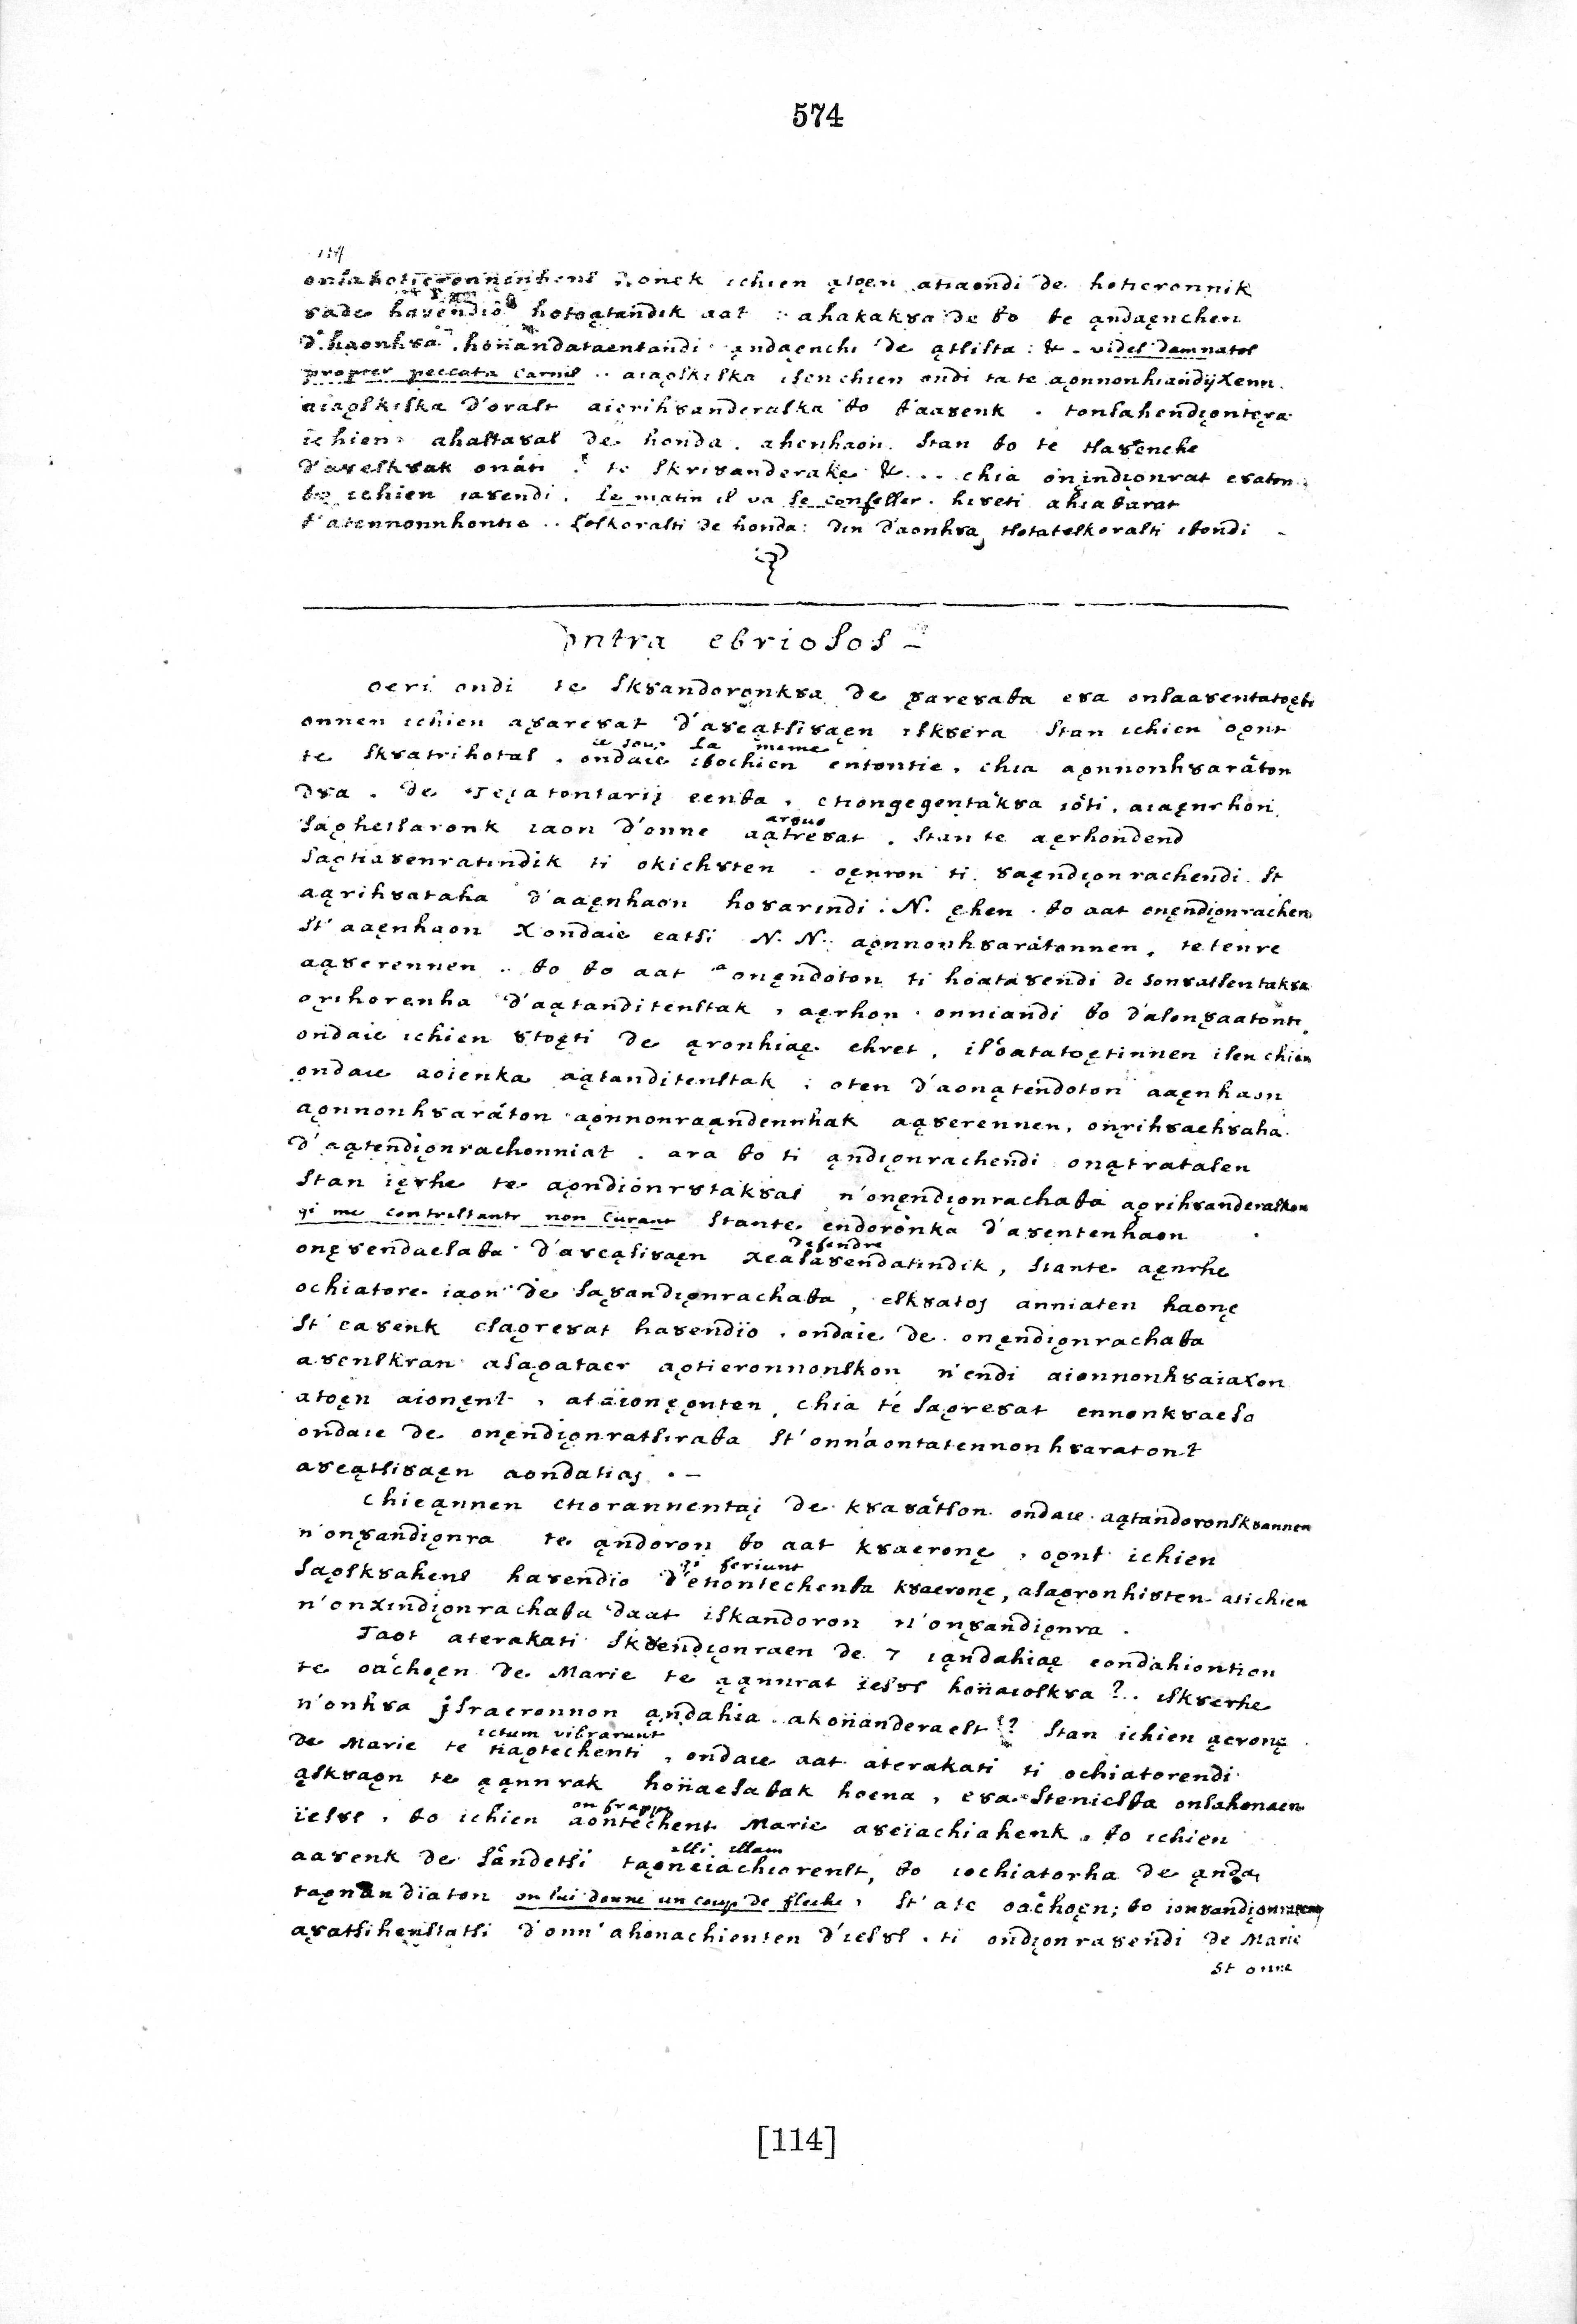 574
onsahotieronnenhens ꞌonek ichien ątoęn atiaondi de hotieronnik
ȣade haȣendio hotoątandik aat : ahakakȣa de ꝋo te ąndaęnchen
d'haonhȣa . honandataentandi ąndaęnchi de ątsista : & . vides damnatos
propter peccata carnis .. aiaǫskiska isen chien ondi ta te aǫnnonhiandijxenn.
aiaǫskiska d'orast aierihȣanderaska ꝋo ꝋ'aaȣenk . tonsahendiǫntęra
ichien ahastaȣas de honda . ahenhaon . stan ꝋo te tsaȣenche
d'aȣeskȣak onati . te skriȣanderake & ... chia oņindiǫnrat eȣaton
ꝋo ichien iaȣendi . Le matin il va se confesser . hiȣeti ahiaꝋarat
t'atennonnhontie .. soskorasti de honda : din d'aonhȣa, tsotateskorasti iꝋondi
ontra ebriosos –
oeri ondi te skȣandoronkȣa de ȣareȣaꝋa eȣa onsaaȣentatoęti
onnen ichien aȣareȣat d'aȣeątsiȣaęn iskȣera stan ichien oǫnt
ie sou. la meme
te skȣatrihotas . ondaie iꝋochien entontie . chia aǫnnonhȣaráton
dȣa . de Teçatontariį eenꝋa . etiongegentakȣa ioti . aiaęnrhon
arguo
saǫhessaronk iaon d'onne aątreȣat . stan te aęrhondend
saǫtiaȣenratindik ti okichȣten . oęnron ti ȣaęndiǫnrachendi . st
aąrihȣataha d'aaęnhaon hoȣarindi . N. ęhen . ꝋo aat onęndiǫnrachen
st'aaęnhaon xondaie eatsi N. N. aǫnnonhȣarátonnen , te tenre
aąȣerennen . ꝋo ꝋo aat aonęndoton ti hoataȣendi de sonȣatsentakȣa
orihorenha d'aątanditenstak , aęrhon . onniandi ꝋo d'asonȣaatonti
ondaie ichien ȣtoęti de ąronhiaę ehret , isoatatoętinnen isen chien
ondaie aoienka aątanditenstak ; oten d'aonątendoton aaęnhaon
aǫnnonhȣaráton aǫnnonraąndennhak aąȣerennen , onęrihȣaehȣaha
d'aątendiǫnrachonniat . ara ꝋo ti ąndiǫnrachendi onątratasen
stan ięrhe te aǫndionrȣtakȣas n'onęndiǫnrachaꝋa aǫrihȣanderaskon
qi me contristantr non curant stante endorónka d'aȣentenhaon
defendre
onęȣendaesaꝋa d'aȣeąsiȣaęn xeasaȣendatindik , stante aęnrhe
ochiatore iaon de saȣandiǫnrachaꝋa , eskȣatoj anniaten haonę
st'eaȣenk esaǫreȣat haȣendio . ondaie de onęndiǫnrachaꝋa
aȣenskran asaǫataer aǫtieronnonskon n'endi aionnonhȣaiaxon
atoęn aionęns , ataionęǫnten , chia té saǫreȣat ennonkȣaeso
ondaie de onęndiǫnratsiraꝋa st'onnáontatennonhȣaratont
aȣeątsiȣaęn aondatiaj . –
Chieąnnen etiorannentaį de kȣaȣatson ondaie aątandoronskȣannen
n'onȣandiǫnra te ąndoron ꝋo aat kȣaeronę , oǫnt ichien
qi feriunt
saǫskȣahens haȣendio d'etiontechenꝋa kȣaeronę , asaǫronhiȣten asichien
n'onxindiǫnrachaꝋa daat iskandoron n'onȣandiǫnra .
Taot aterakati skȣendiǫnraen de 7 iąndahiaę eondahiontion
te oáchoęn de Marie te ąąnnrat iesȣs honaioskȣa ? . iskȣerhe
n'onhȣa jsraeronnon ąndahia akonanderaest ? stan ichien ąeronę
ictum vibrarunt
de Marie te tiaǫtechenti , ondaie aat aterakati ti ochiatorendi
ąskȣaǫn te ąąnnrak honaesaꝋak hoena , eȣa steniesꝋa onsahonaen
on frappe
iesȣs . ꝋo ichien aontechens Marie aȣeiachiahenk . ꝋo ichien
illi illam
aaȣenk de sandetsi taǫneiachiorenst , ꝋo iochiatorha de ąnda,
taǫnandiaton on lui donne un coup de fleche , st'ate oáchoęn ; ꝋo ionȣandiǫnraen
aȣatsihenstatsi d'onn'ahonachienten d'iesȣs . ti ondiǫnraȣendi de Marie
st onne
[114]